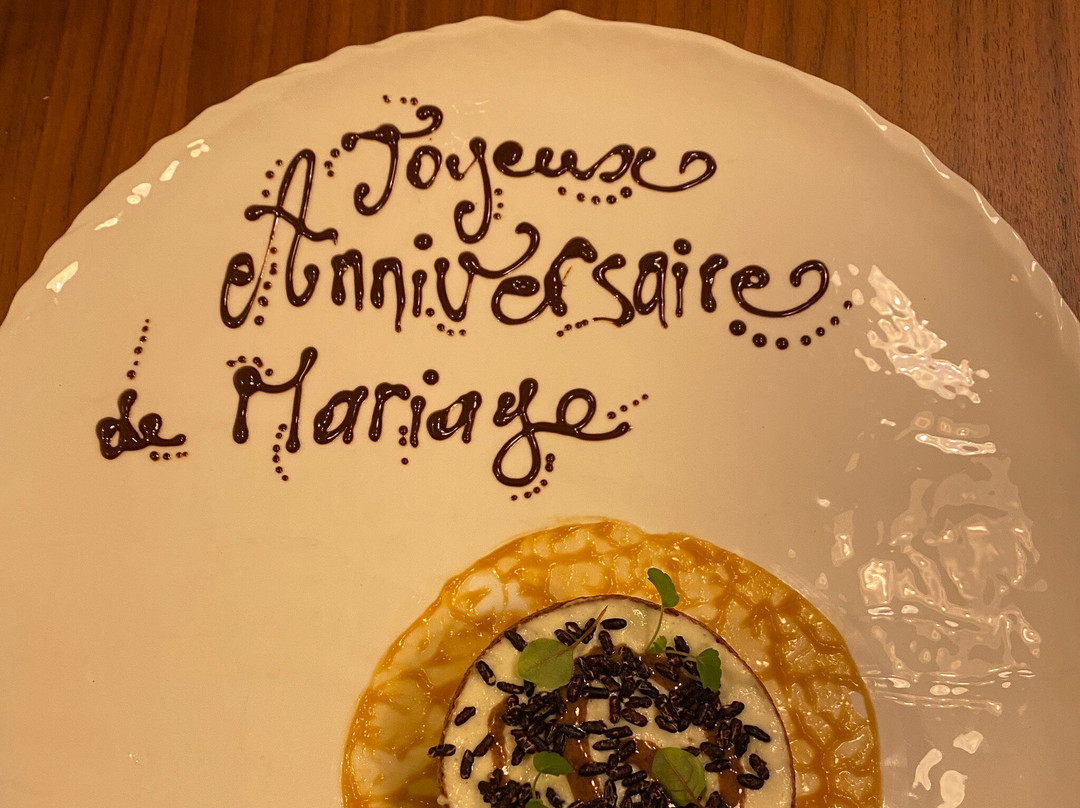 Joyeux
Anniversaire
de Mariage